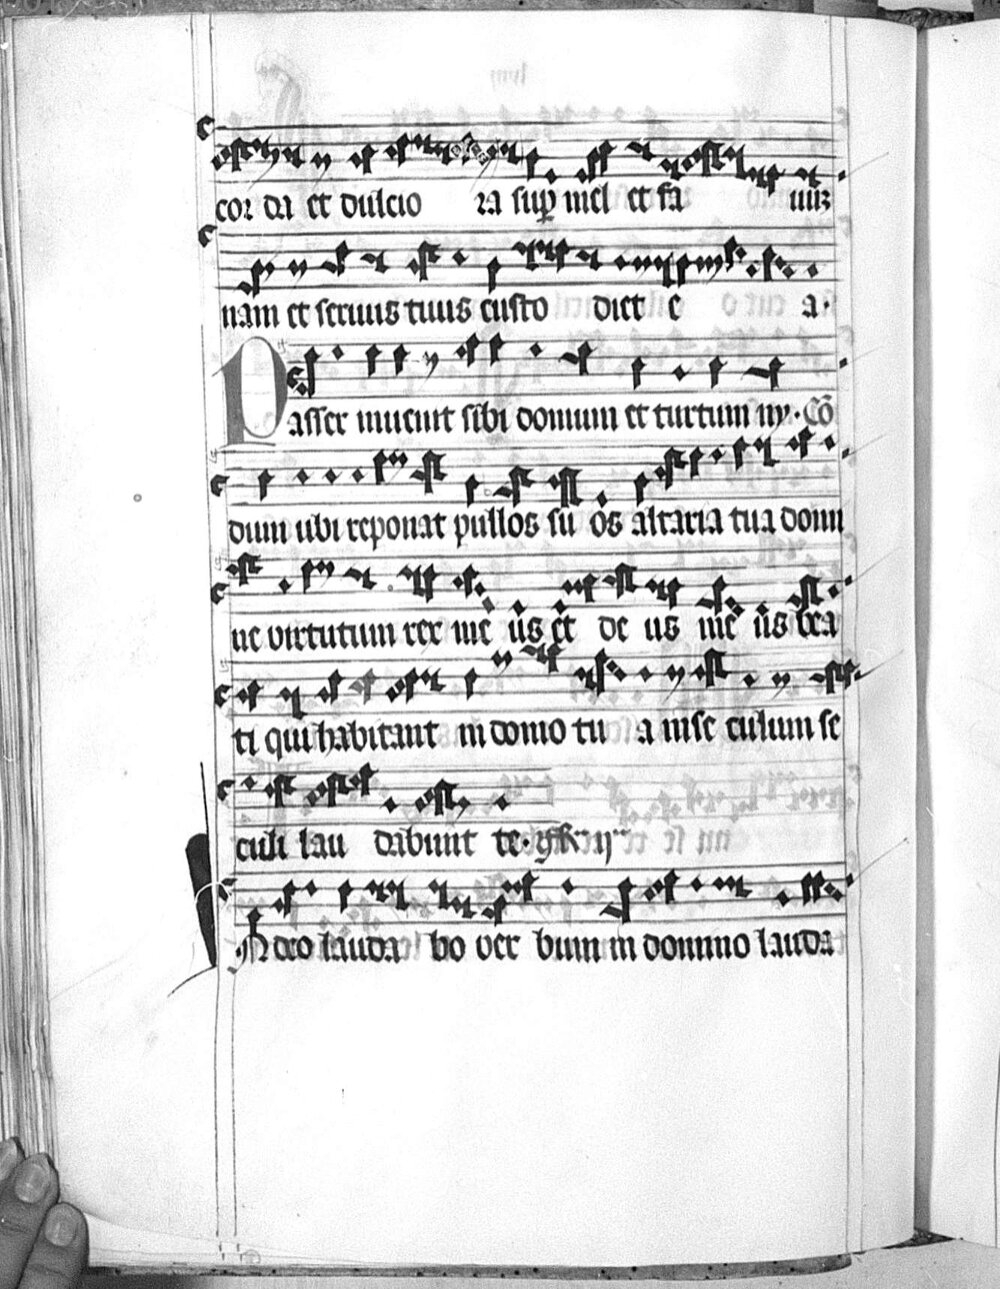 cor da et dulcio ra sup mel et fa uuꝫ
nam et seruus tuus custo diet e a.
Passer inuenit sibi domum et turtur ny. Cō
dum ubi reponat pullos su os altaria tua domi
ne uirtutum rex me us et de us me us bea
ti qui habitant in domo tu a in se culum se
culi lau dabunt te.
In deo lauda bo ver bum in domino lauda